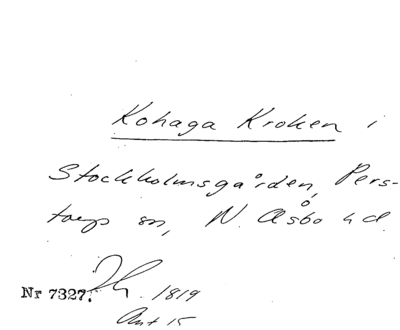 Kohaga Kroken i
Stockholmsgården, Pers-
torps sn, N. Åsbo hd.
Nr 7327. 1819
Ant 15